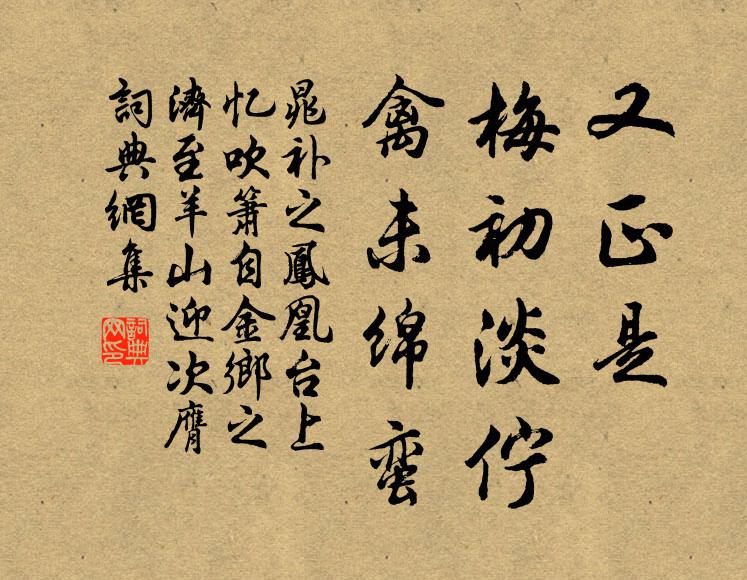 又正是
梅初淡佇
禽未绵蛮
晁补之鳳凰台上
忆吹簫自金鄉之
濟至羊山迎次膺
詞典網集
詞典網印